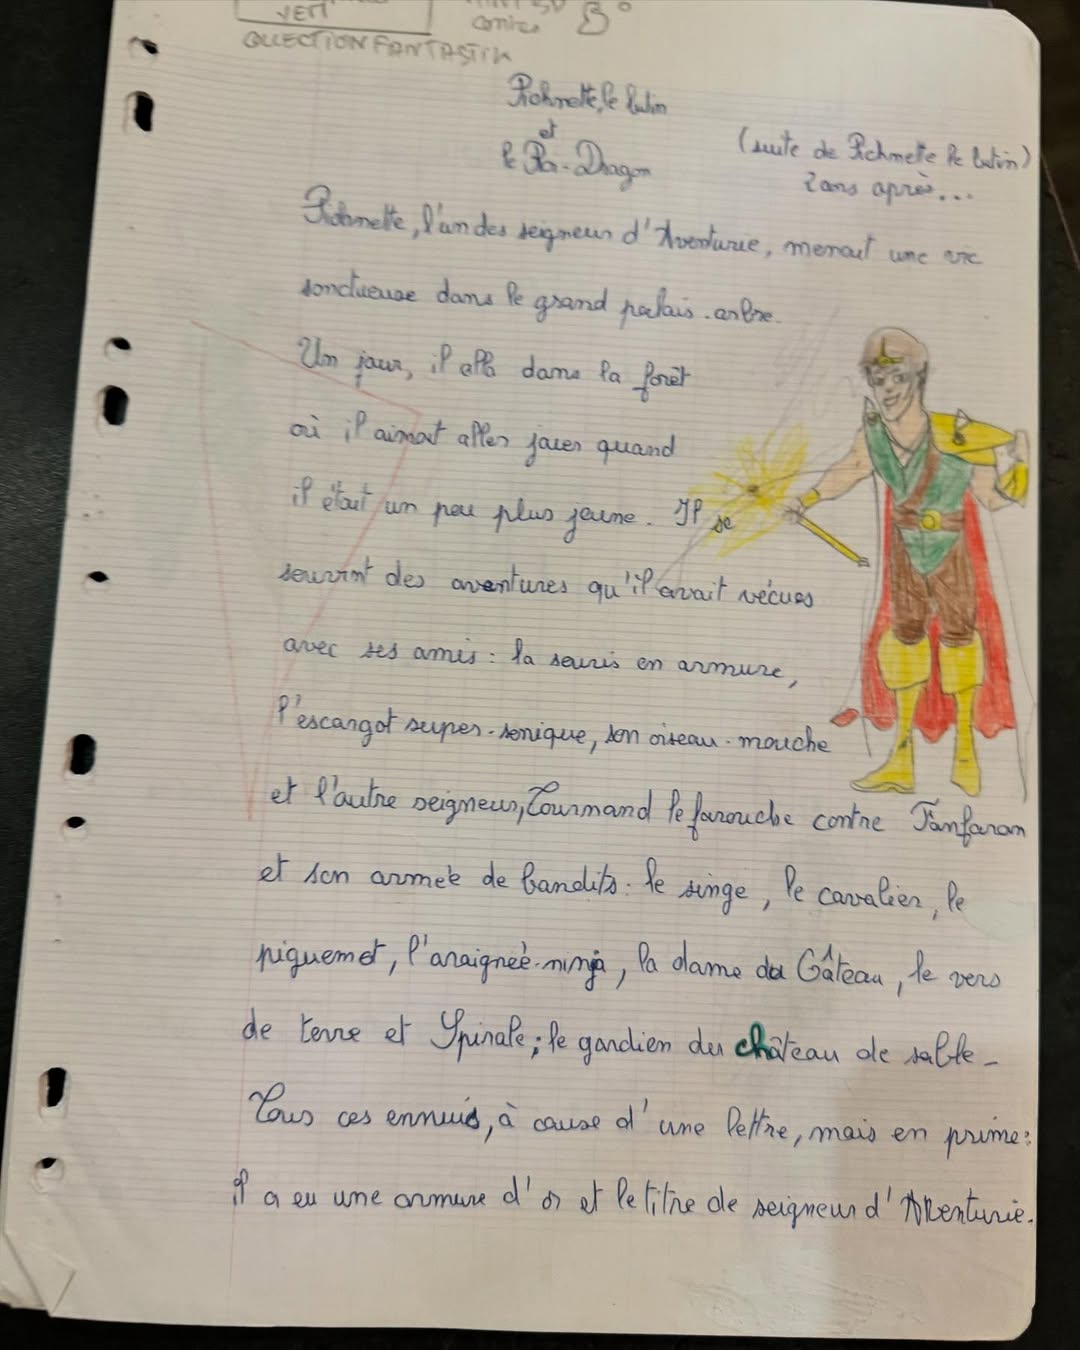 VERT
comics B°
COLLECTION FANTASTIK
Pichnette, le lutin
et
le Roi-Dragon
(suite de Pichnette le lutin)
2 ans après...
Pichnette, l'un des seigneurs d'Aventurie, menait une vie
sonctueuse dans le grand palais-arbre.
Un jour, il alla dans la forêt
où il aimait aller jouer quand
il était un peu plus jeune. Il se
souvint des aventures qu'il avait vécues
avec ses amis : la souris en armure,
l'escargot super-sonique, son oiseau-mouche
et l'autre seigneur, Tourmand le farouche contre Fanfaron
et son armée de bandits : le singe, le cavalier, le
piquemet, l'araignée-ninja, la dame du Gâteau, le vers
de terre et Spirale ; le gardien du château de sable -
Tous ces ennuis, à cause d'une lettre, mais en prime :
il a eu une armure d'or et le titre de seigneur d'Aventurie.